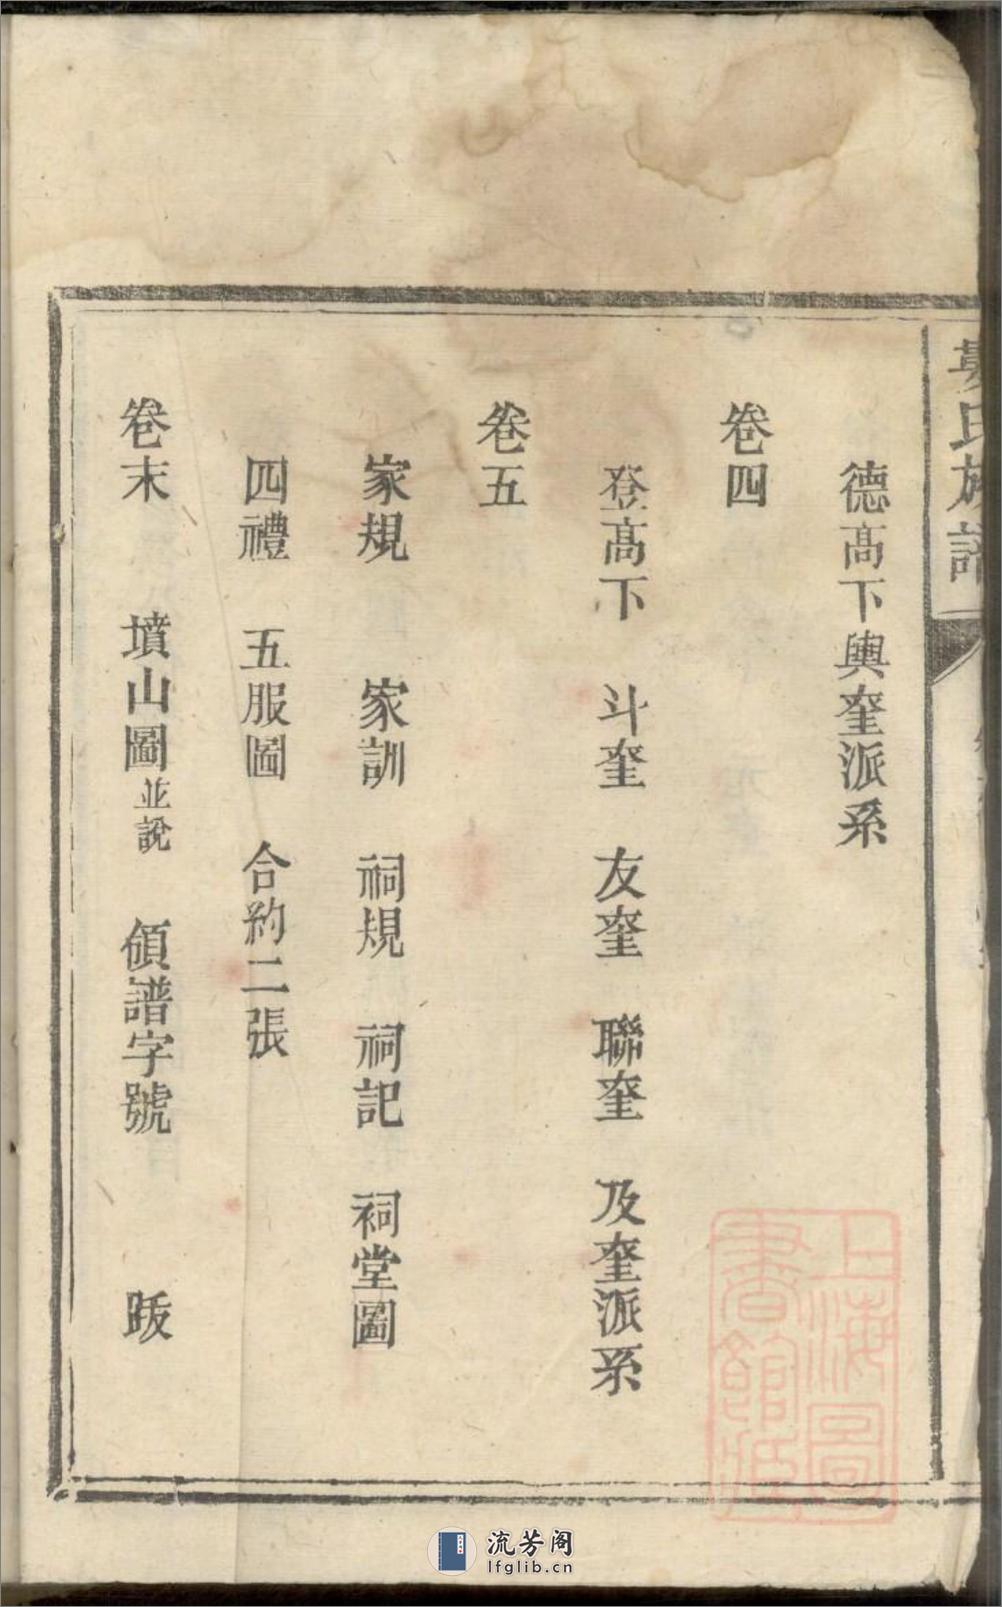 氏族譜
德高下輿奎派系
卷四
登高下　斗奎　友奎　聯奎　及奎派系
卷五
家規　家訓　祠規　祠記　祠堂圖
四禮　五服圖　合約二張
卷末　墳山圖並說　領譜字號　跋
上海圖書館藏
流芳阁
lfglib.cn